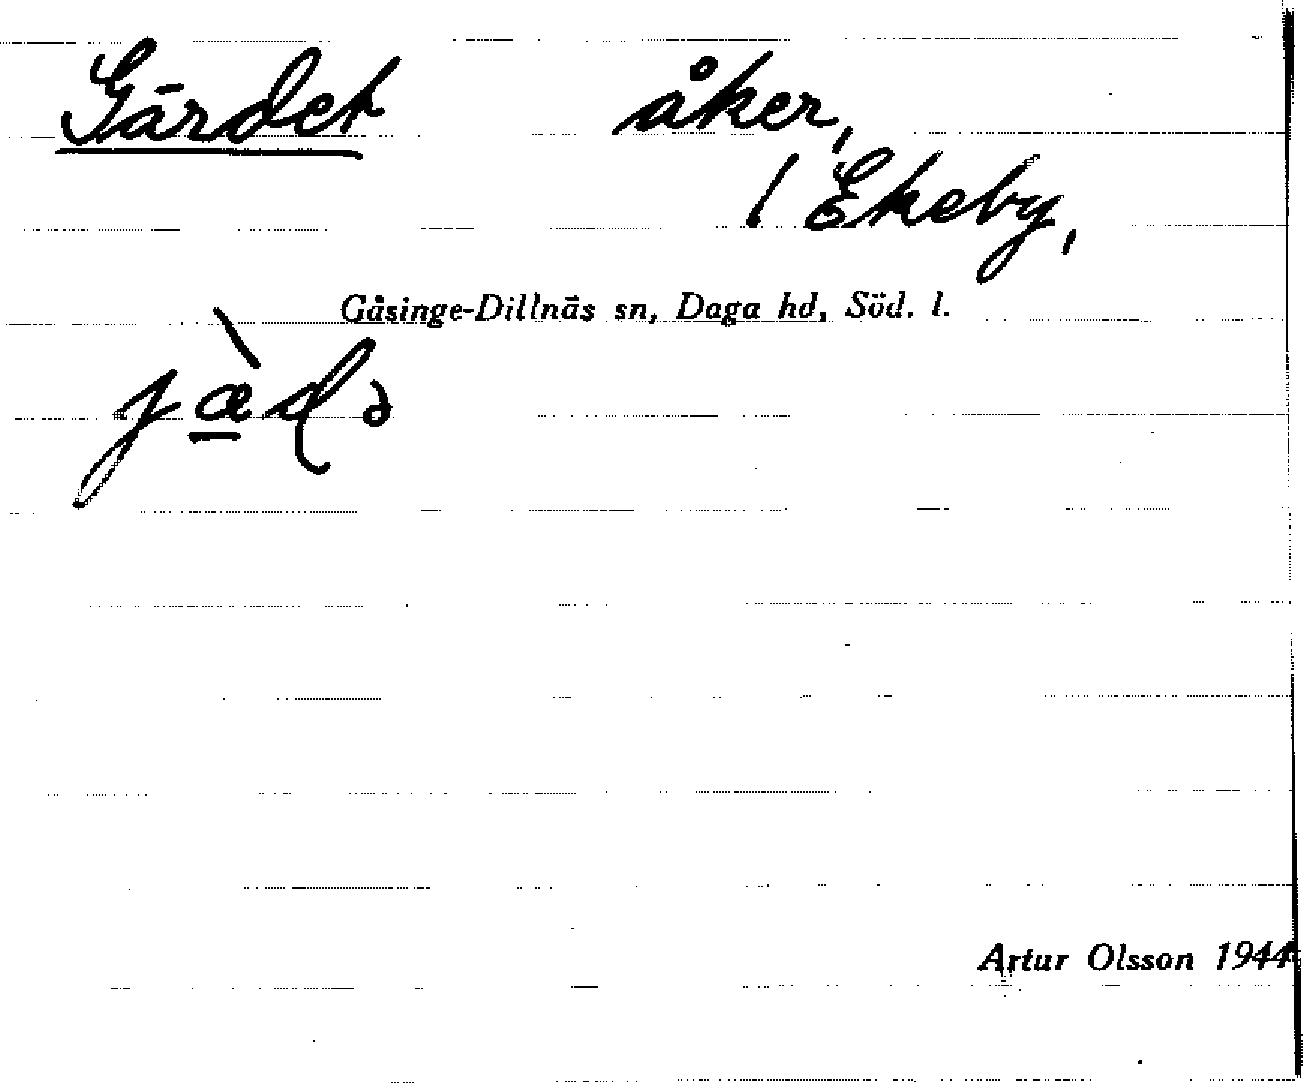 Gärdet åker,
/ Ekeby,
Gåsinge-Dillnäs sn, Daga hd, Söd. l.
Artur Olsson 1944